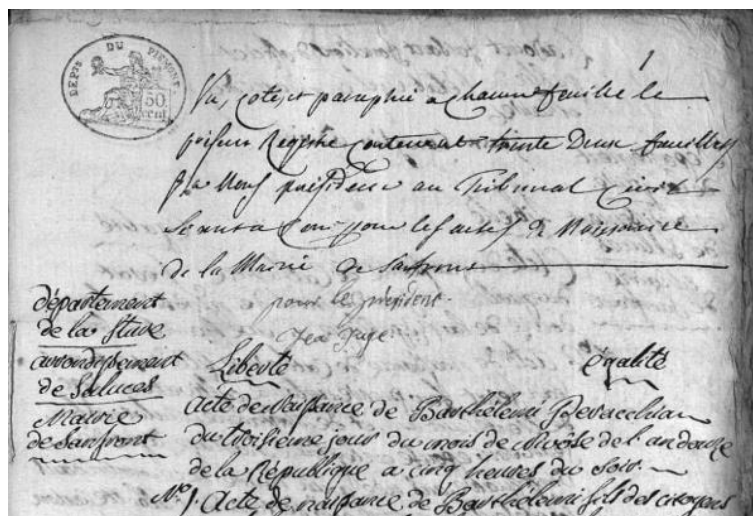 DEP.ts DU PIEMONT
50 cent
1
Vu, coté et paraphé a chacune feuille le
présent Registre contenant trente Deux feuillets
par Nous président au Tribunal Civil
pour les actes de Naissance
de la Mairie de Sanfront
pour le président
Juge
département
de la Sture
arrondissement
de Saluces
Mairie
de Sanfront
Liberté
égalité
Acte de Naissance de Barthélemi
du troisieme jour du mois de nivôse de l'an douze
de la République a cinq heures du soir.
N.º 1. Acte de naissance de Barthélemi fils des citoyens